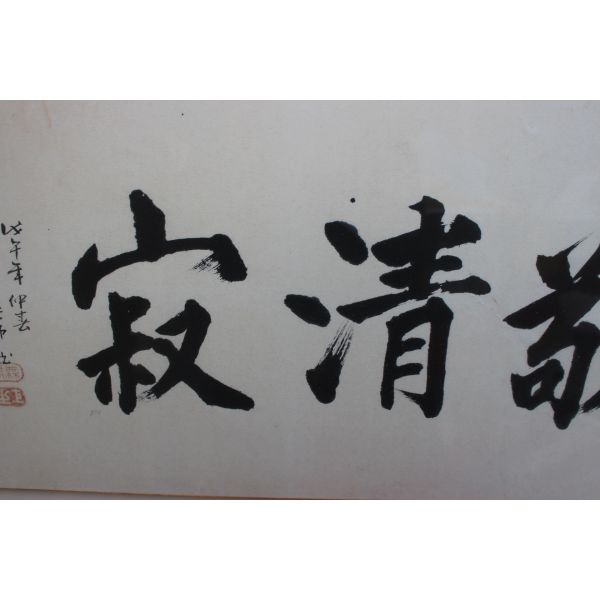 敬清寂
戊午年仲春